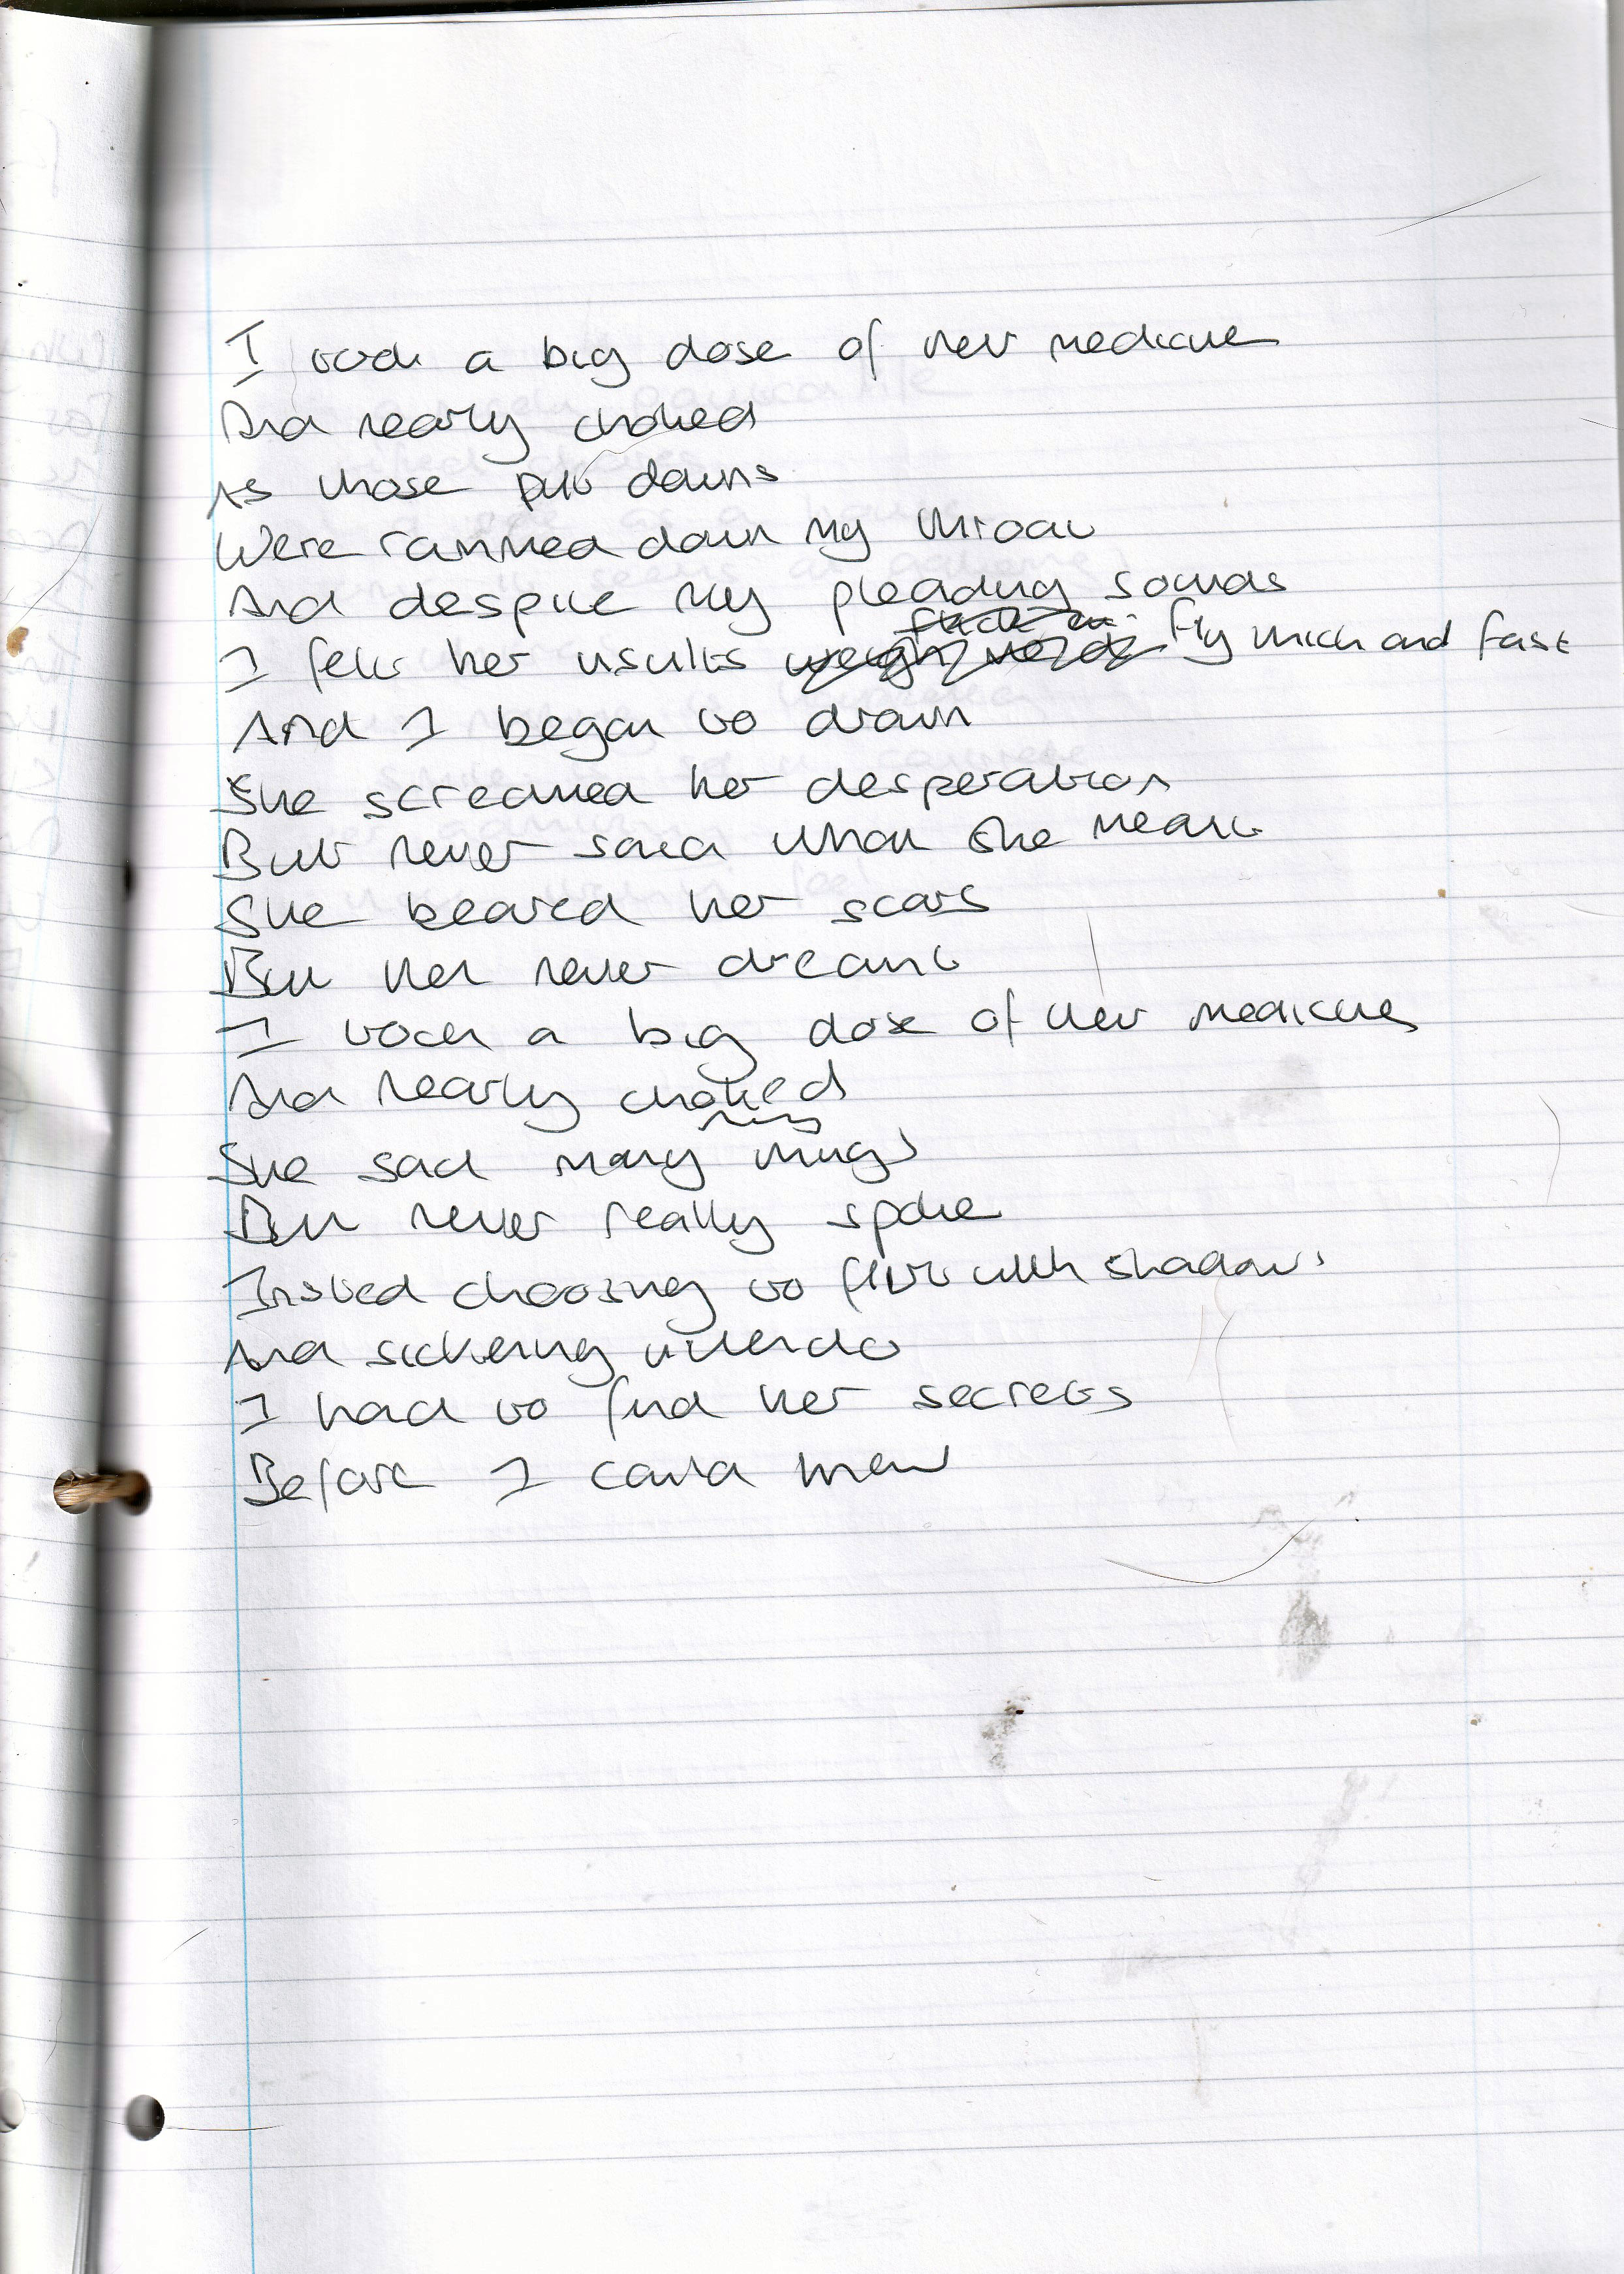 I took a big dose of her medicine
And nearly choked
As those put downs
Were rammed down my throat
And despite my pleading sounds
I felt her insults fly thick and fast
And I began to drown
She screamed her desperation
But never said what she meant
She beared her scars
But not her dreams
I took a big dose of her medicine
And nearly choked
She said many things
But never really spoke
Insted choosing to flirt with shadows
And sickening inuendo
I had to find her secrets
Before I could know